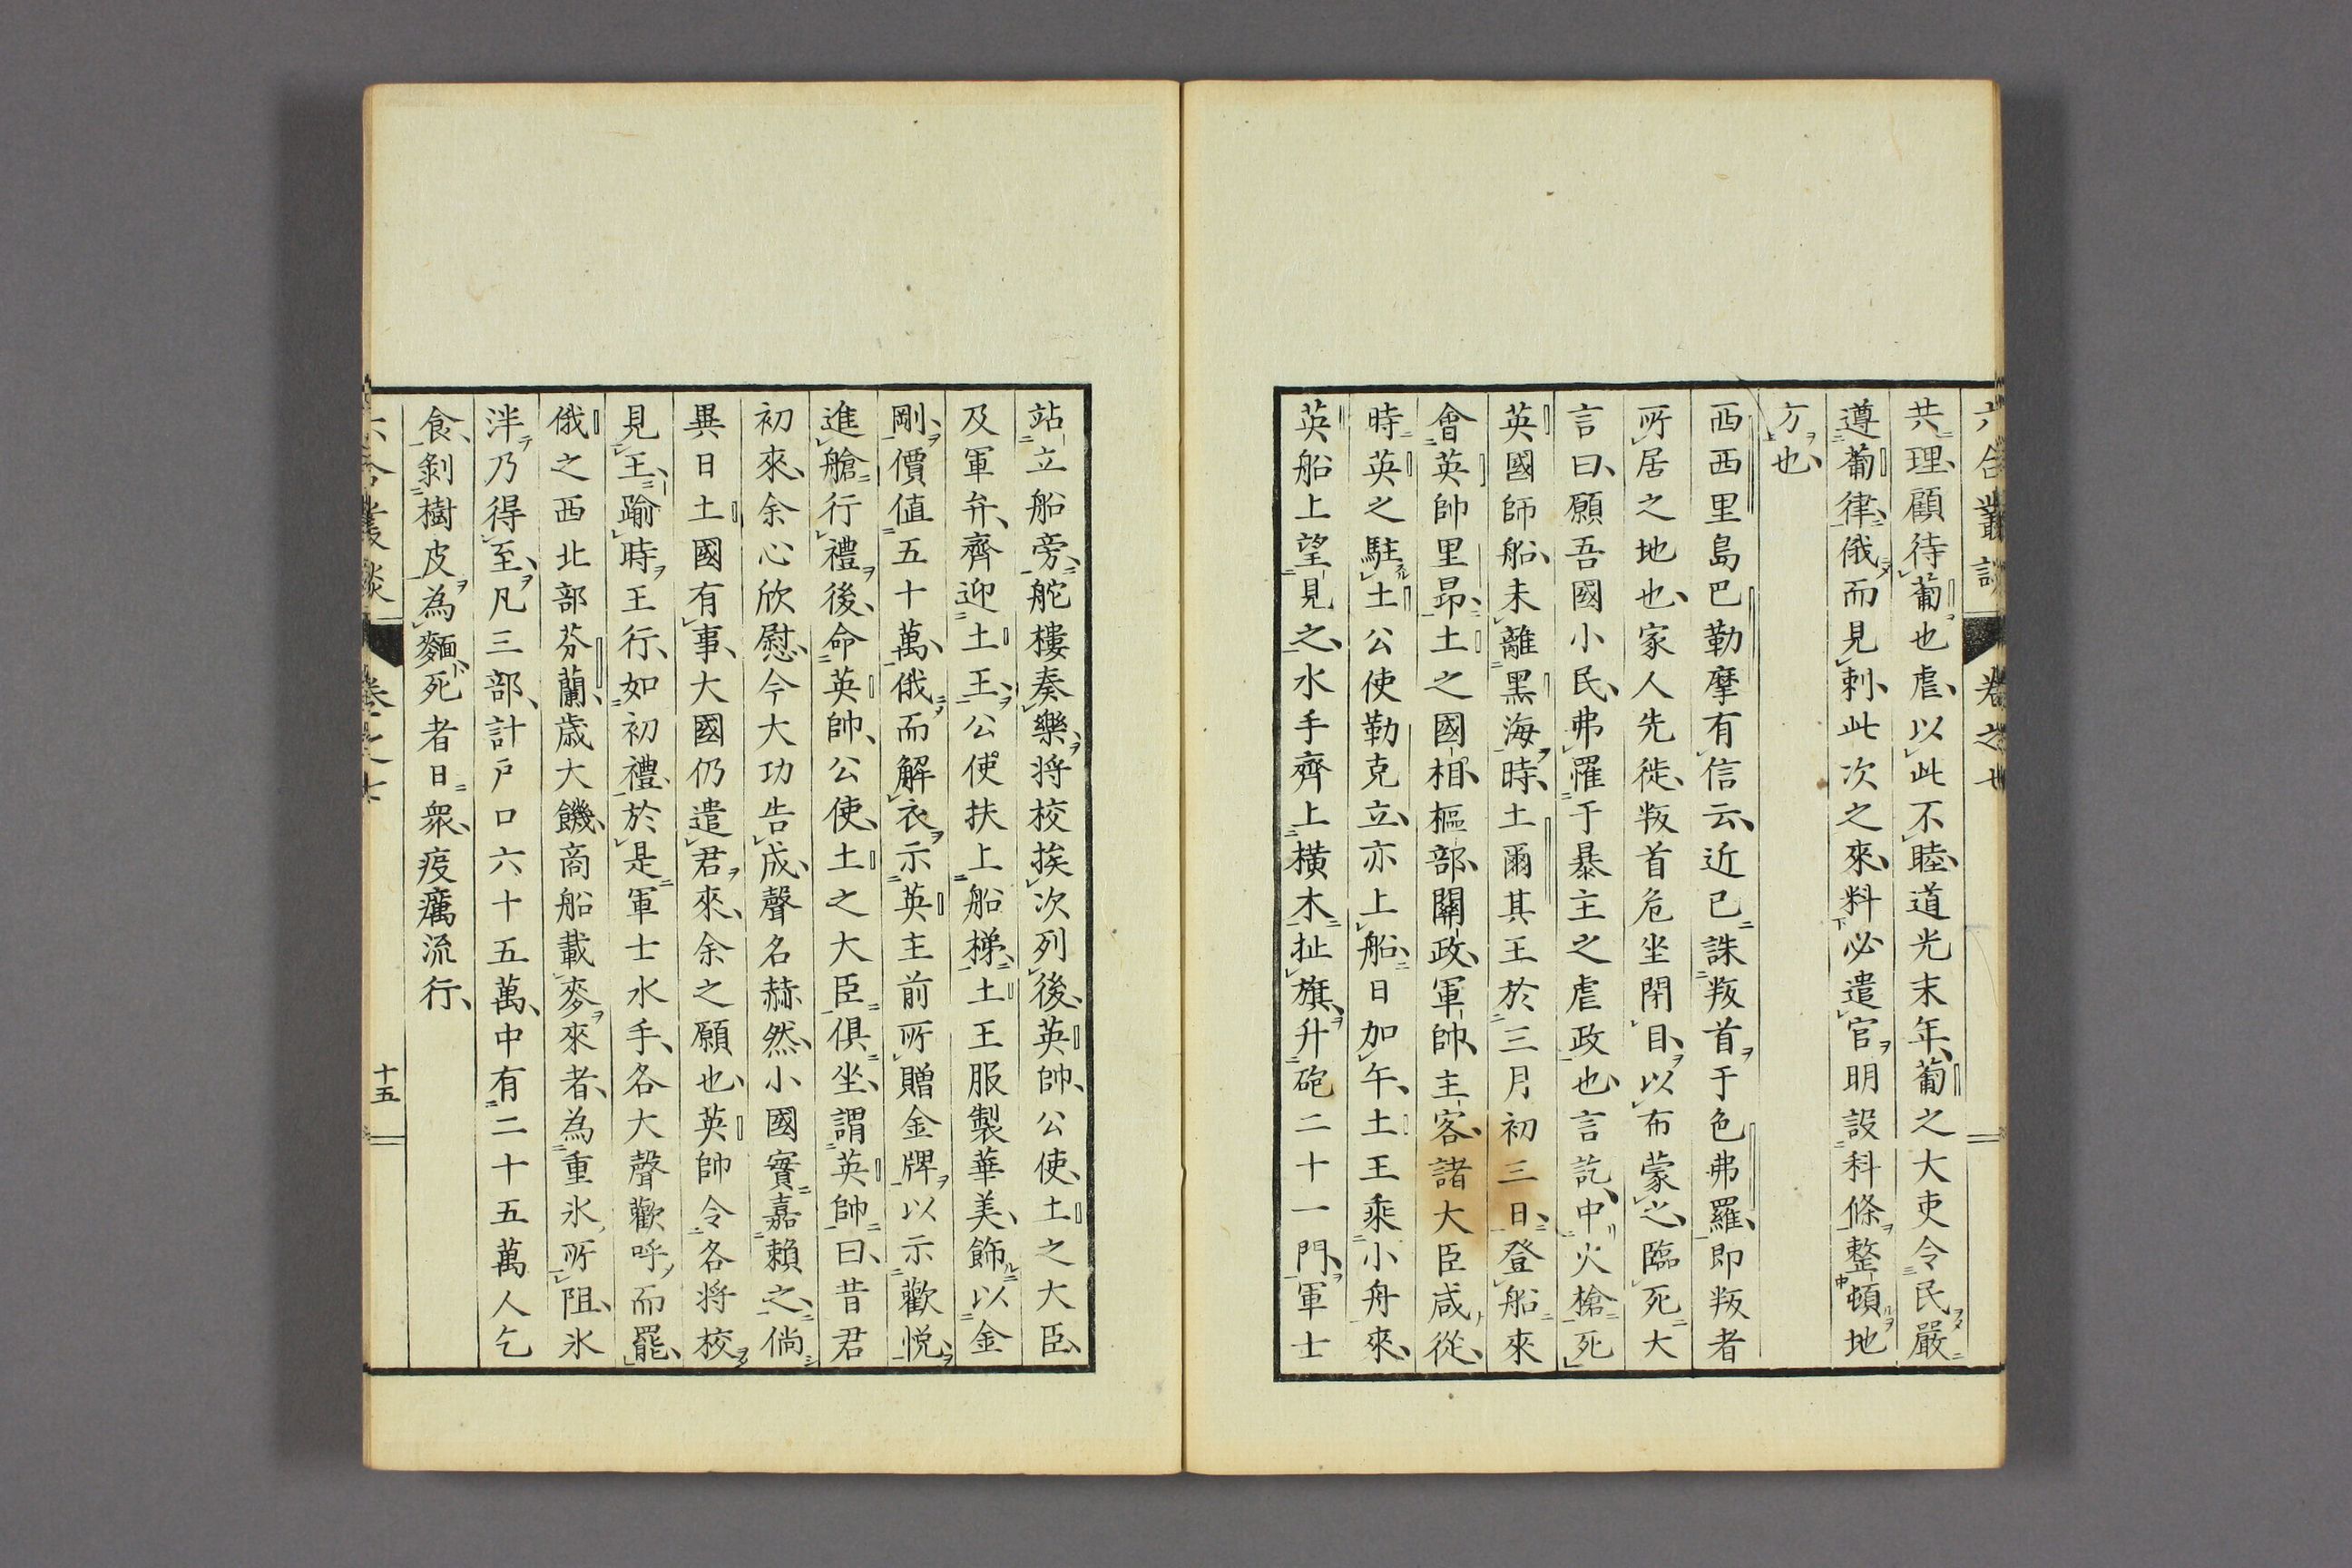 六合叢談 卷之七
共理、顧待葡也虐、以此不睦、道光末年、葡之大吏令民嚴
遵葡律、俄而見刺、此次之來、料必遣官明設科條整頓地
方也、
西西里島巴勒摩有信云、近已誅叛首于色弗羅、即叛者
所居之地也、家人先徙、叛首危坐閉目、以布蒙之、臨死大
言曰、願吾國小民、弗罹于暴主之虐政也、言訖、中火槍死
英國師船、未離黑海時、土爾其王於三月初三日、登船來
會英帥里昂、土之國相、樞部、關政、軍帥、主客、諸大臣咸從、
時英之駐土公使勒克立、亦上船、日加午、土王乘小舟來、
英船上望見之、水手齊上橫木、扯旗、升砲二十一門、軍士
站立船旁、舵樓奏樂、将校挨次列後、英帥、公使、土之大臣、
及軍弁、齊迎土王、公使扶上船梯、土王服製華美、飾以金
剛、價值五十萬、俄而解衣示英主前所贈金牌以示歡悦、
進艙行禮後、命英帥、公使、土之大臣俱坐、謂英帥曰、昔君
初來、余心欣慰、今大功告成、聲名赫然、小國實嘉賴之、倘
異日土國有事、大國仍遣君來、余之願也、英帥令各将校
見王、踰時王行、如初禮、於是軍士水手、各大聲歡呼、而罷、
俄之西北部芬蘭、歳大饑、商船載麥來者、為重氷所阻、氷
泮乃得至、凡三部、計戸口六十五萬、中有二十五萬人乞
食、剝樹皮為麵、死者日衆、疫癘流行、
六合叢談 卷之七 十五